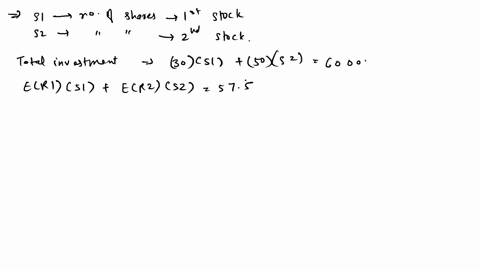 ⇒ S1 → no. of shares → 1st stock
S2 → " " → 2nd stock.
Total investment → (30)(S1) + (50)(S2) = 6000.
E(R1)(S1) + E(R2)(S2) = 57.5